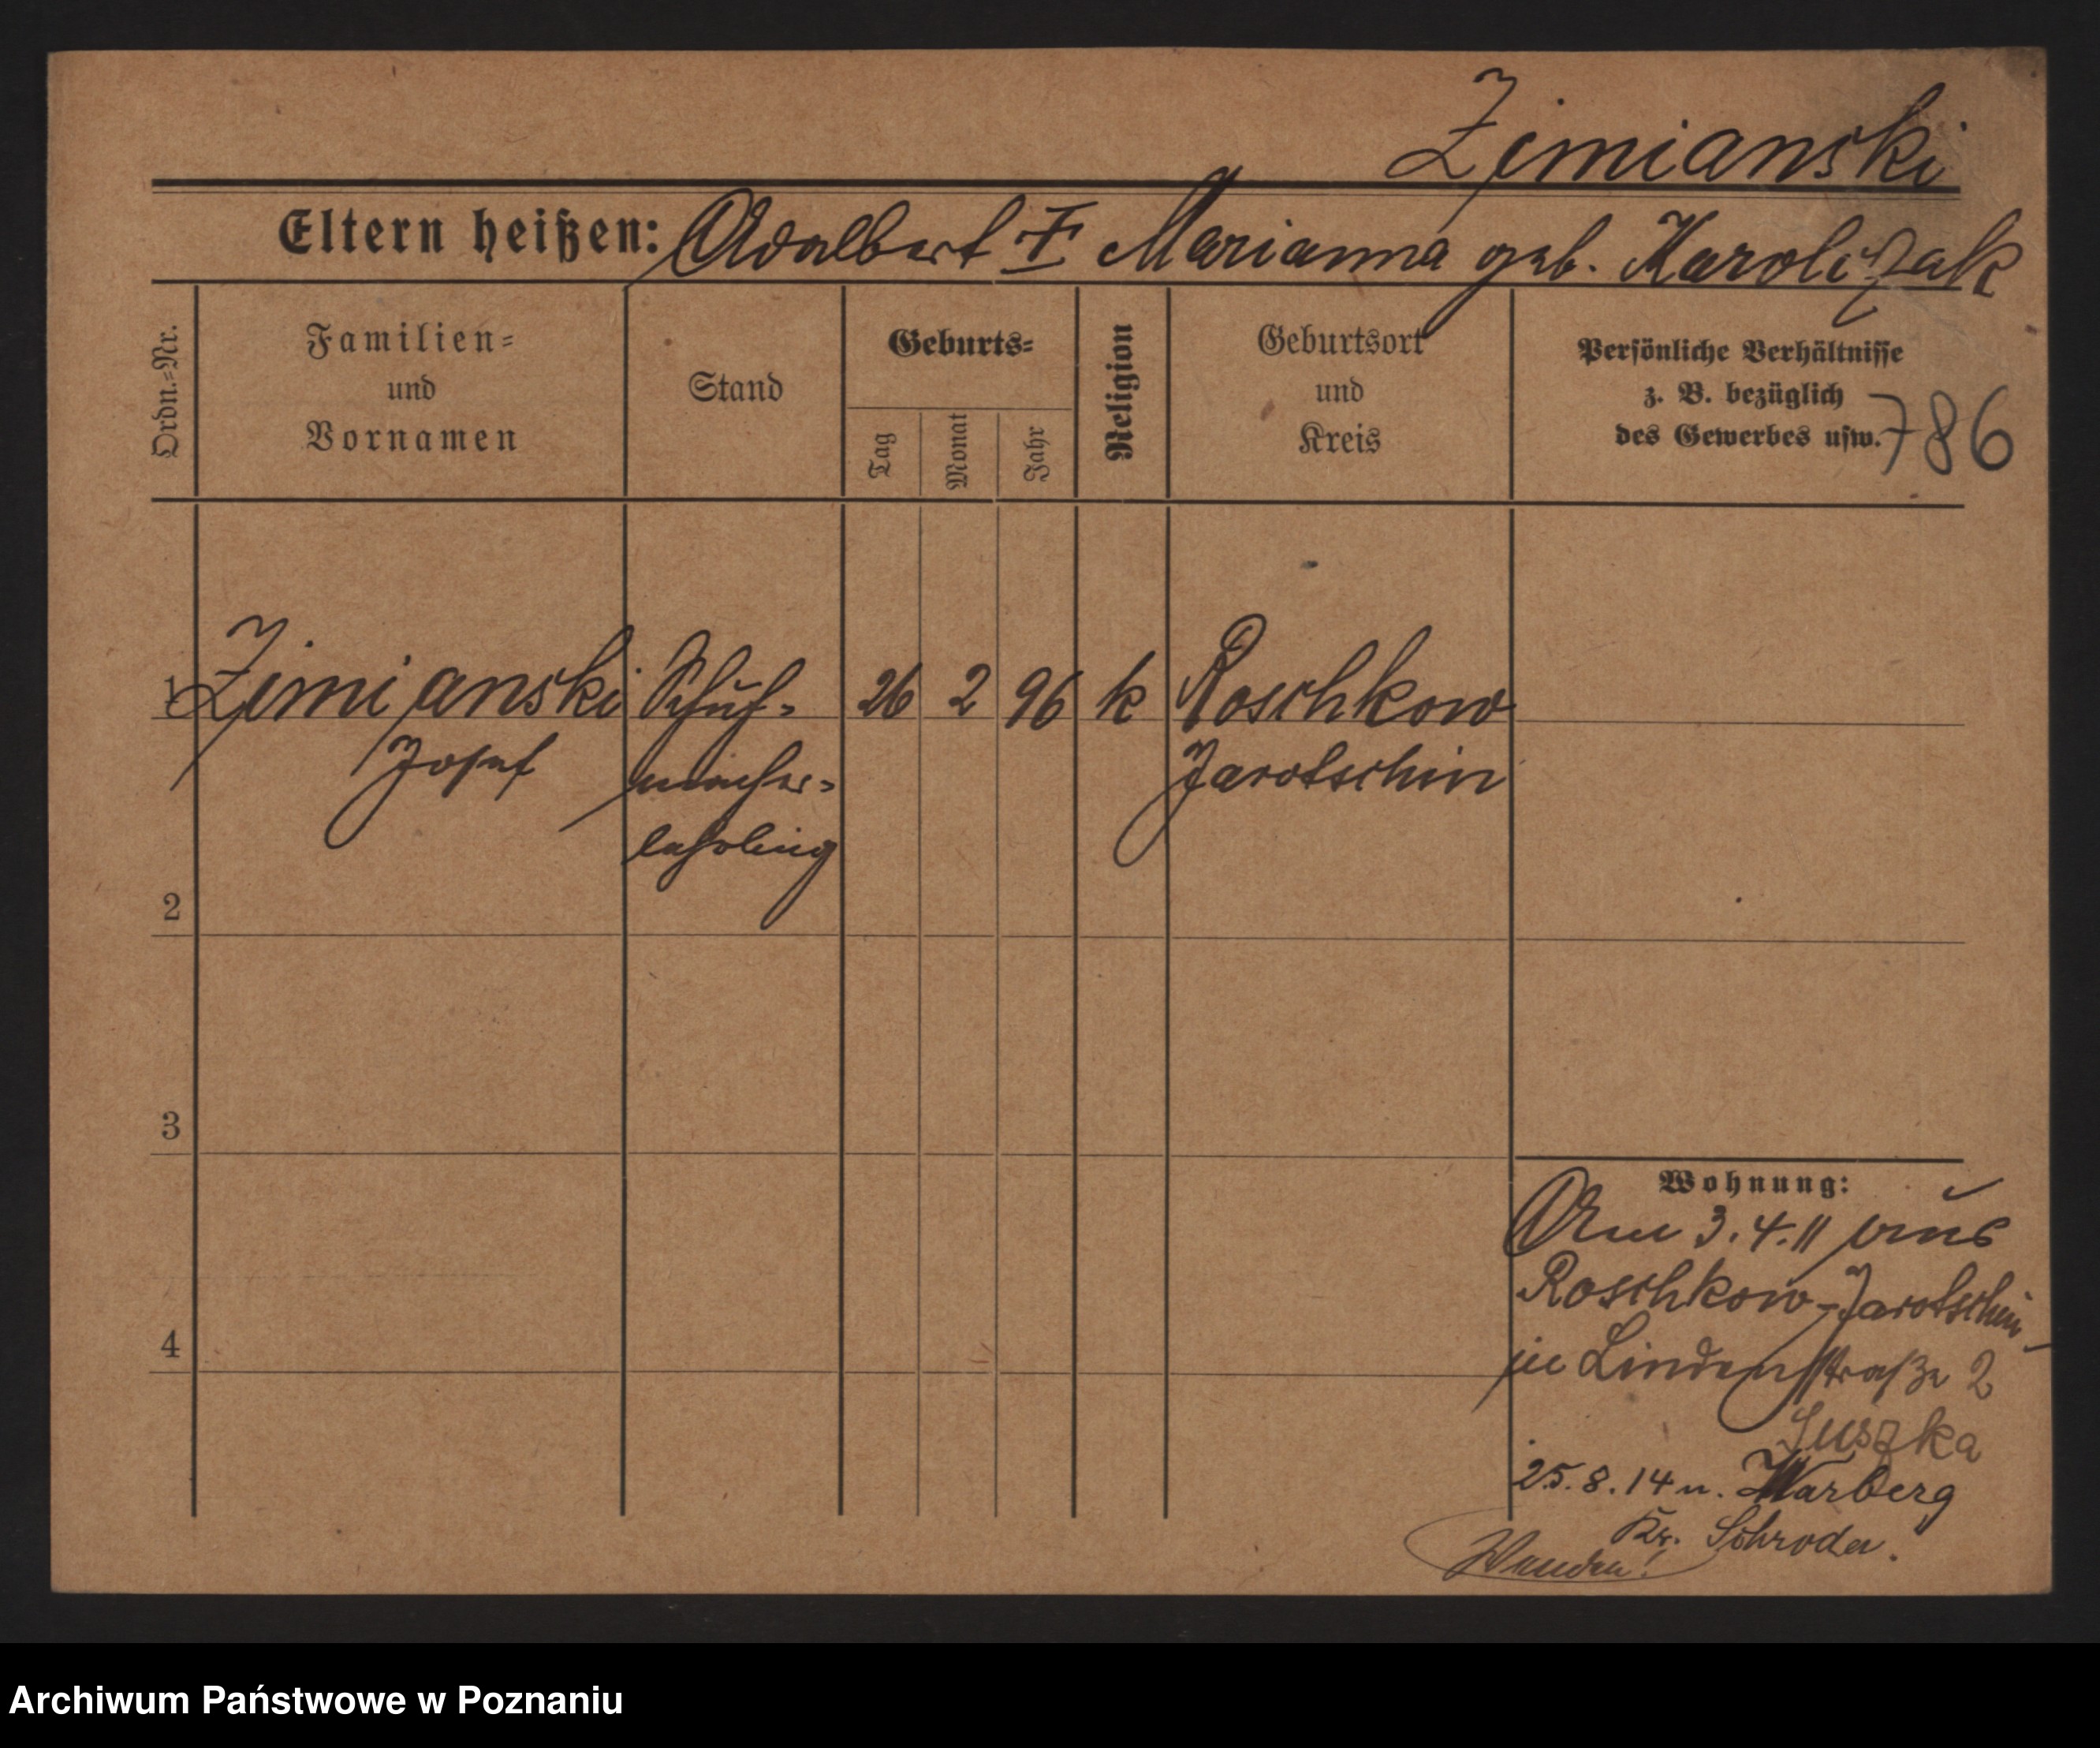 Zimianski
Eltern heißen: Adalbert † Marianna geb. Karolczak
Ordn.-Nr.
Familien-
und
Vornamen
Stand
Geburts-
Tag
Monat
Jahr
Religion
Geburtsort
und
Kreis
Persönliche Verhältnisse
z. B. bezüglich
des Gewerbes usw.
786
1 Zimianski Schuh- 26 2 96 k Roschkow
Josef macher- Jarotschin
lehrling
2
3
4
Wohnung:
Am 3.4.11 aus
Roschkow-Jarotschin-
in Lindenstraße 2
Juszka
25.8.14 n. Warberg
Kr. Schroda.
Wenden!
Archiwum Państwowe w Poznaniu